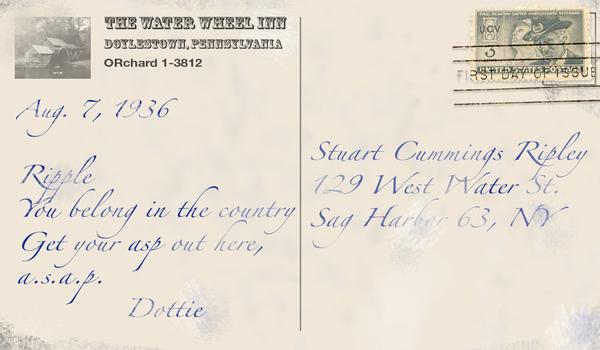 THE WATER WHEEL INN
DOYLESTOWN, PENNSYLVANIA
ORchard 1-3812
Aug. 7, 1936
Ripple
You belong in the country
Get your asp out here,
a.s.a.p.
Dottie
FINAL REUNION UNITED CONFEDERATE VETERANS
UCV
3
FIRST DAY OF ISSUE
Stuart Cummings Ripley
129 West Water St.
Sag Harbor 63, NY